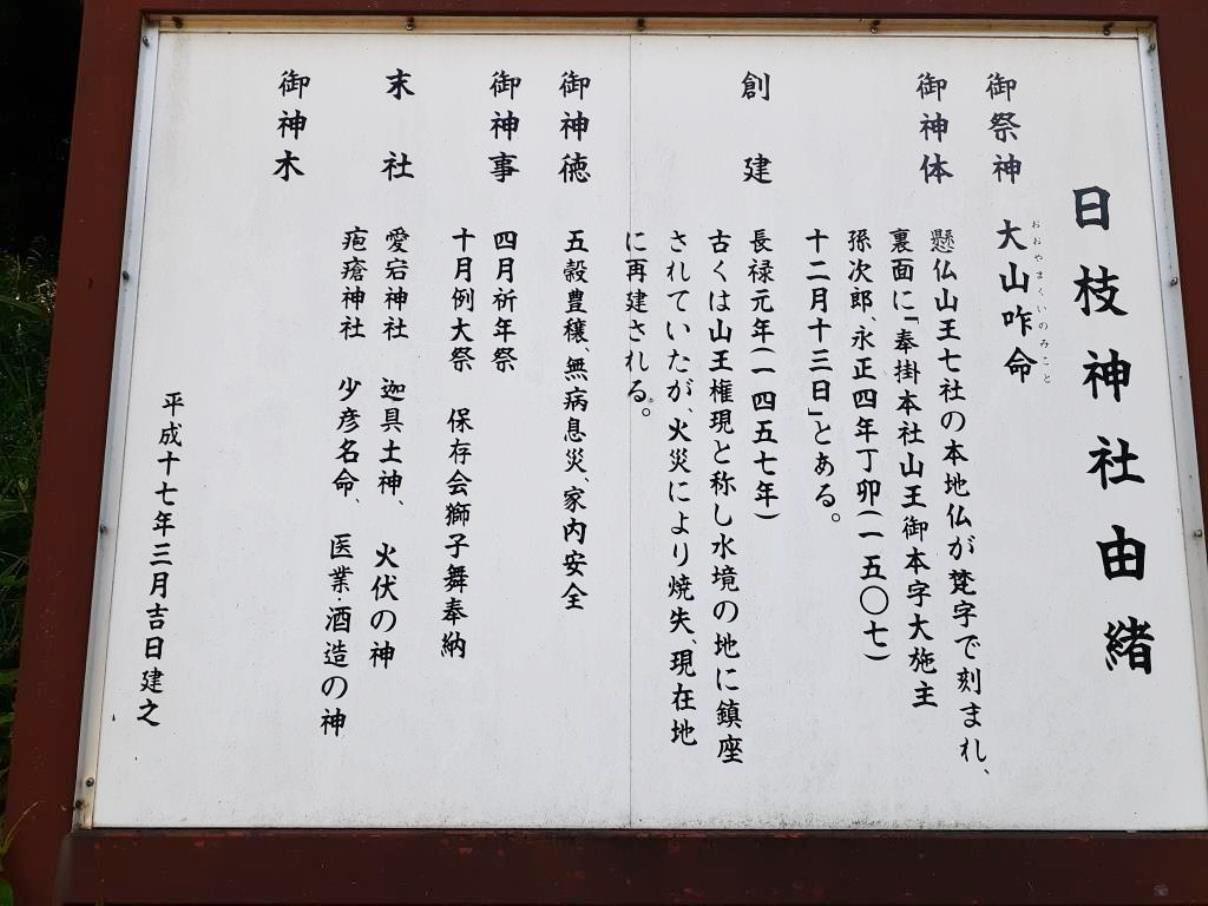 日枝神社由緒
御祭神 大山咋命
おおやまくいのみこと
御神体 懸仏山王七社の本地仏が梵字で刻まれ、
裏面に「奉掛本社山王御本字大施主
孫次郎、永正四年丁卯(一五〇七)
十二月十三日」とある。
創建 長禄元年(一四五七年)
古くは山王権現と称し水境の地に鎮座
されていたが、火災により焼失、現在地
に再建される。
御神徳 五穀豊穣、無病息災、家内安全
御神事 四月祈年祭
十月例大祭 保存会獅子舞奉納
末社 愛宕神社 迦具土神、火伏の神
疱瘡神社 少彦名命、医業・酒造の神
御神木
平成十七年三月吉日建之